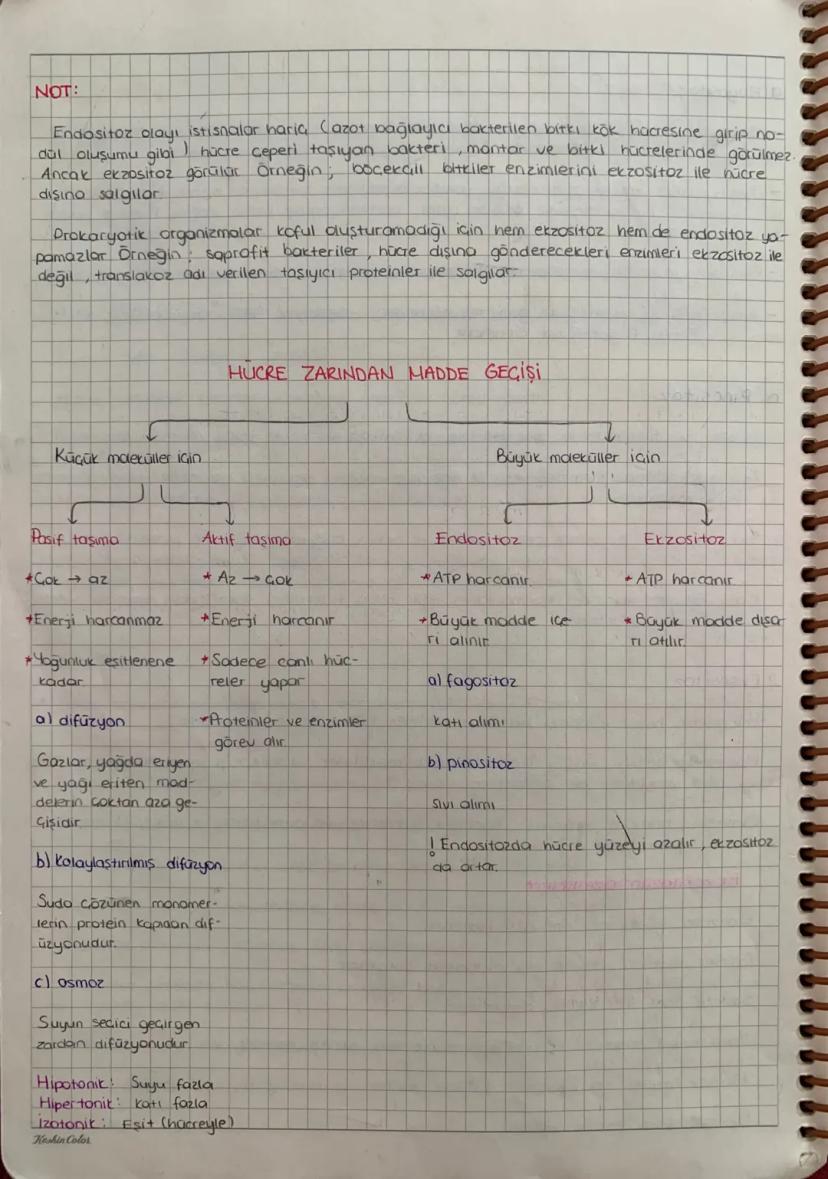 NOT:
Endositoz olayı istisnalar hariç (azot bağlayıcı bakterilen bitki kök hücresine girip no-
dül oluşumu gibi) hücre çeperi taşıyan bakteri, mantar ve bitki hücrelerinde görülmez.
Ancak ekzositoz görülür Örneğin; böcekçil bitkiler enzimlerini ekzositoz ile hücre
dışına salgılar.
Prokaryotik organizmalar koful oluşturamadığı için hem ekzositoz hem de endositoz ya-
pamazlar Örneğin; saprofit bakteriler, hücre dışına gönderecekleri enzimleri ekzositoz ile
değil, translakoz adı verilen taşıyıcı proteinler ile salgılar.
HÜCRE ZARINDAN MADDE GEÇİŞİ
Küçük moleküller için
Büyük moleküller için
Pasif taşıma
*Çok → az
*Enerji harcanmaz
*Yoğunluk eşitlenene
kadar
a) difüzyon
Gazlar, yağda eriyen
ve yağı eriten mad-
delerin çoktan aza ge-
çişidir
b) kolaylaştırılmış difüzyon
Suda çözünen monomer-
lerin protein kapıdan dif-
üzyonudur.
c) osmoz
Suyun seçici geçirgen
zardan difüzyonudur
Hipotonik: Suyu fazla
Hipertonik: katı fazla
İzotonik: Eşit (hücreyle)
Aktif taşıma
* Az → çok
*Enerji harcanır
*Sadece canlı hüc-
reler yapar
*Proteinler ve enzimler
görev alır
Endositoz
*ATP harcanır.
*Büyük madde içe-
ri alınır
a) fagositoz
katı alımı
b) pinositoz
sıvı alımı
! Endositozda hücre yüzeyi azalır, ekzositoz
da artar.
Ekzositoz
* ATP harcanır
* Büyük madde dışa-
rı atılır.
Keskin Color